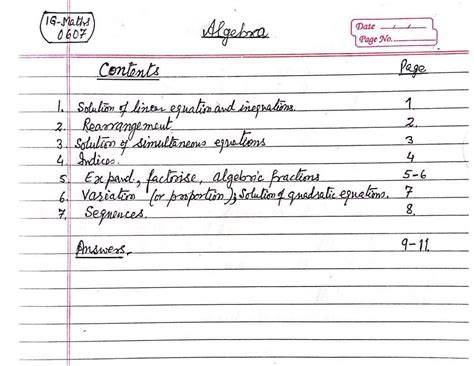 IG-Maths
0607
Algebra
Date / /
Page No.
Contents Page
1. Solution of linear equation and inequations. 1
2. Rearrangement 2.
3. Solution of simultaneous equations 3
4. Indices. 4
5. Expand, factorise, algebraic fractions 5-6
6. Variation (or proportion), Solution of quadratic equations. 7
7. Sequences. 8.
Answers. 9-11.